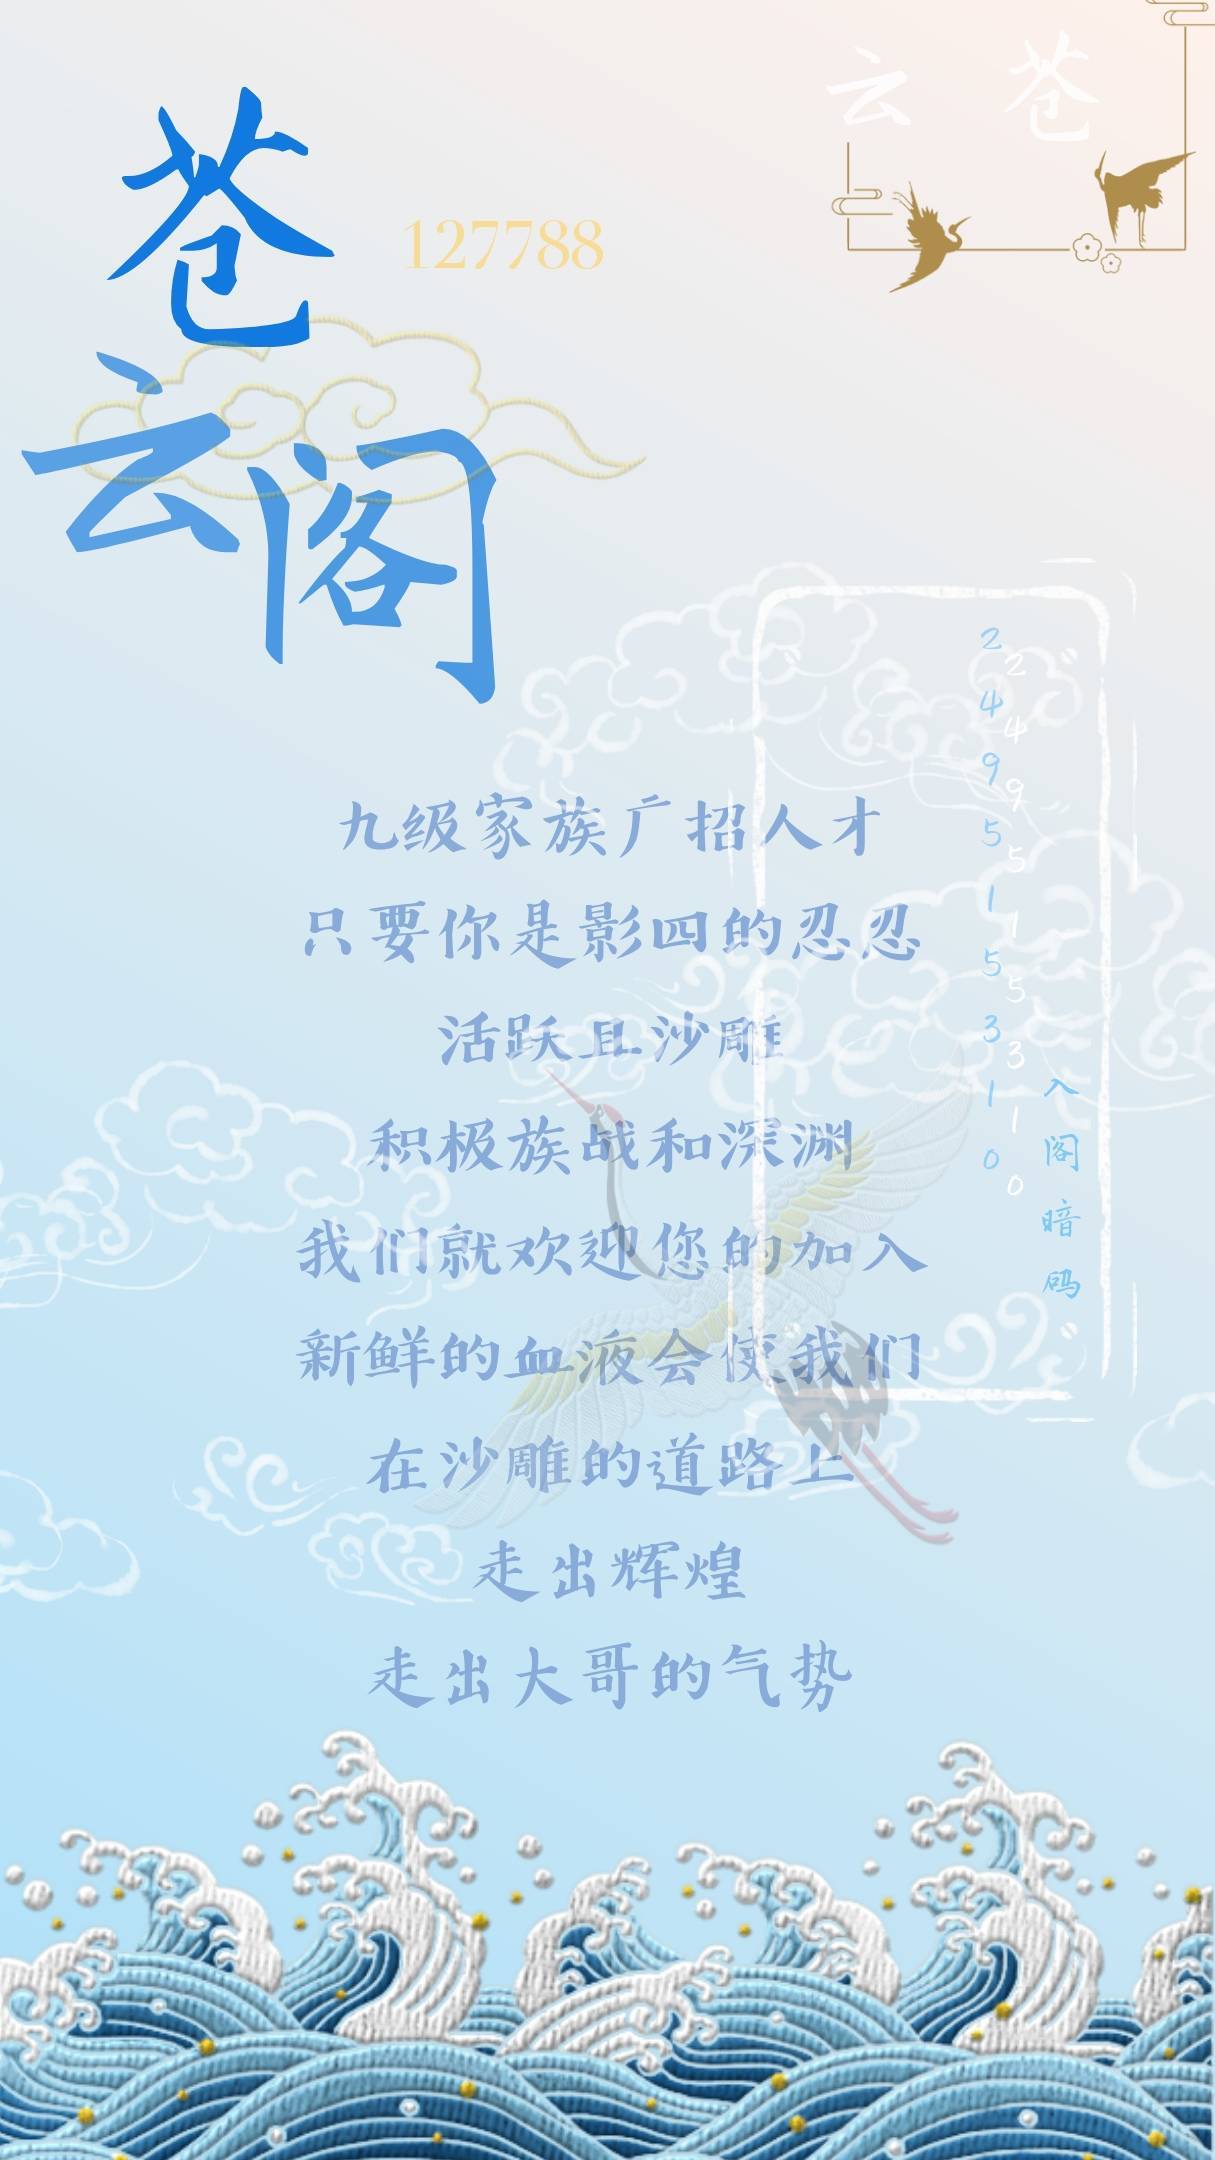 云 苍
苍
127788
云阁
249515310
249515310
入阁暗码
九级家族广招人才
只要你是影四的忍忍
活跃且沙雕
积极族战和深渊
我们就欢迎您的加入
新鲜的血液会使我们
在沙雕的道路上
走出辉煌
走出大哥的气势